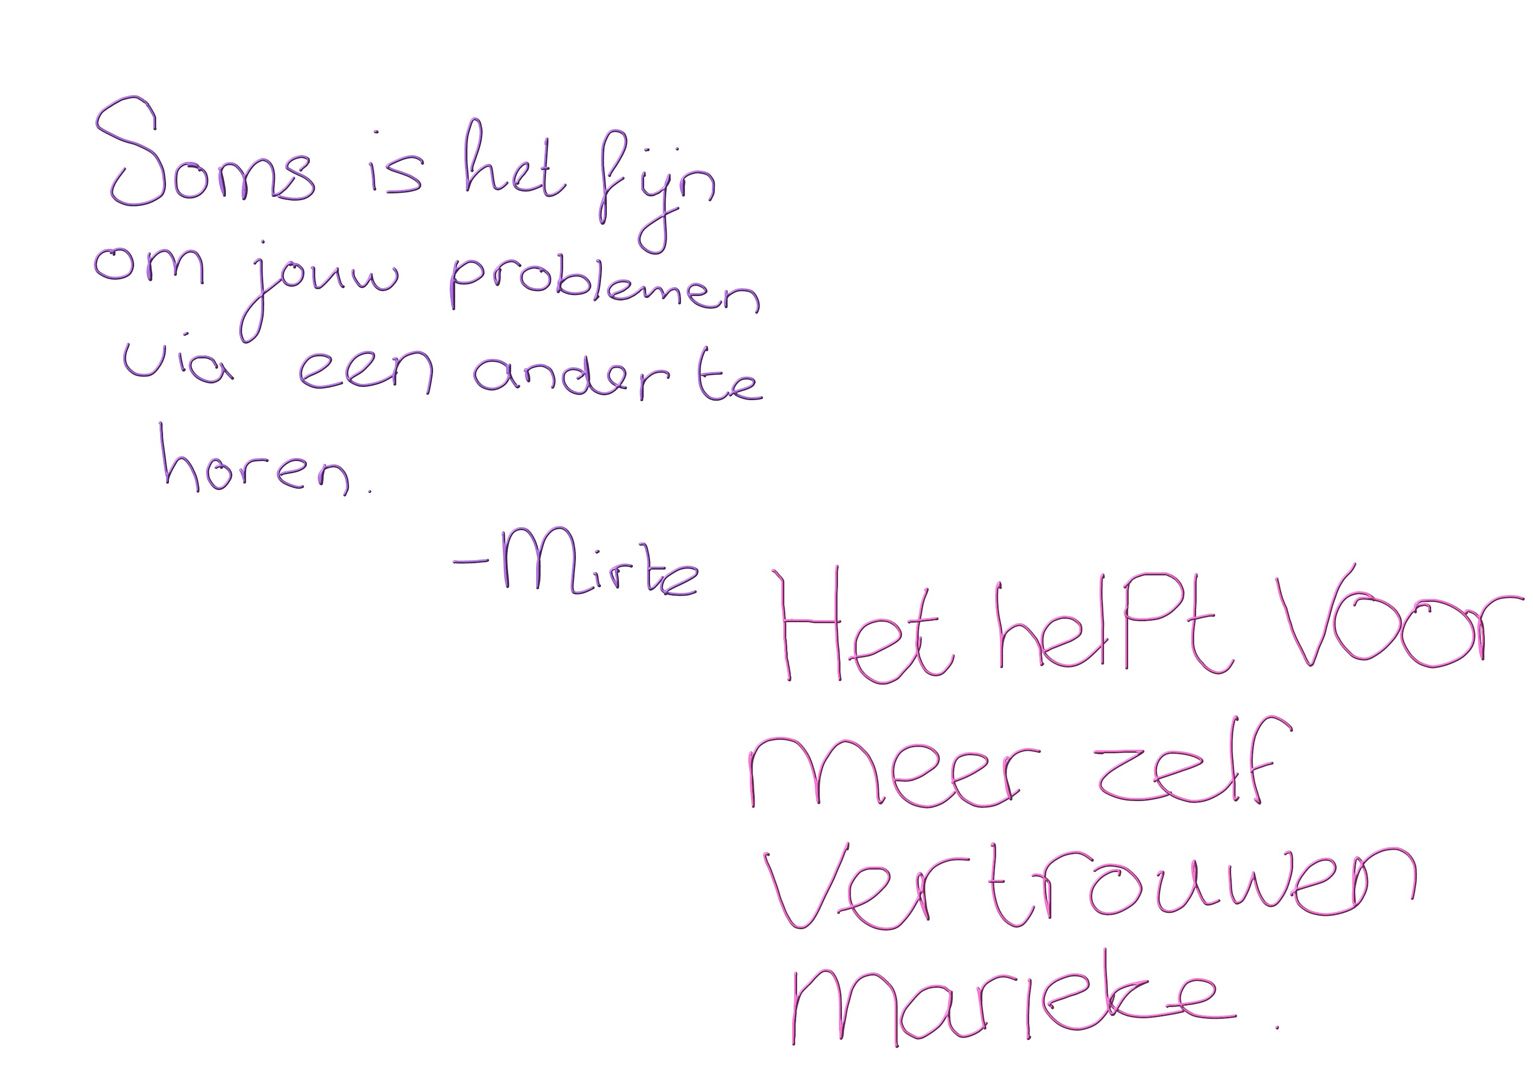 Soms is het fijn
om jouw problemen
via een ander te
horen.
-Mirte
Het helpt voor
meer zelf
vertrouwen
marieke.